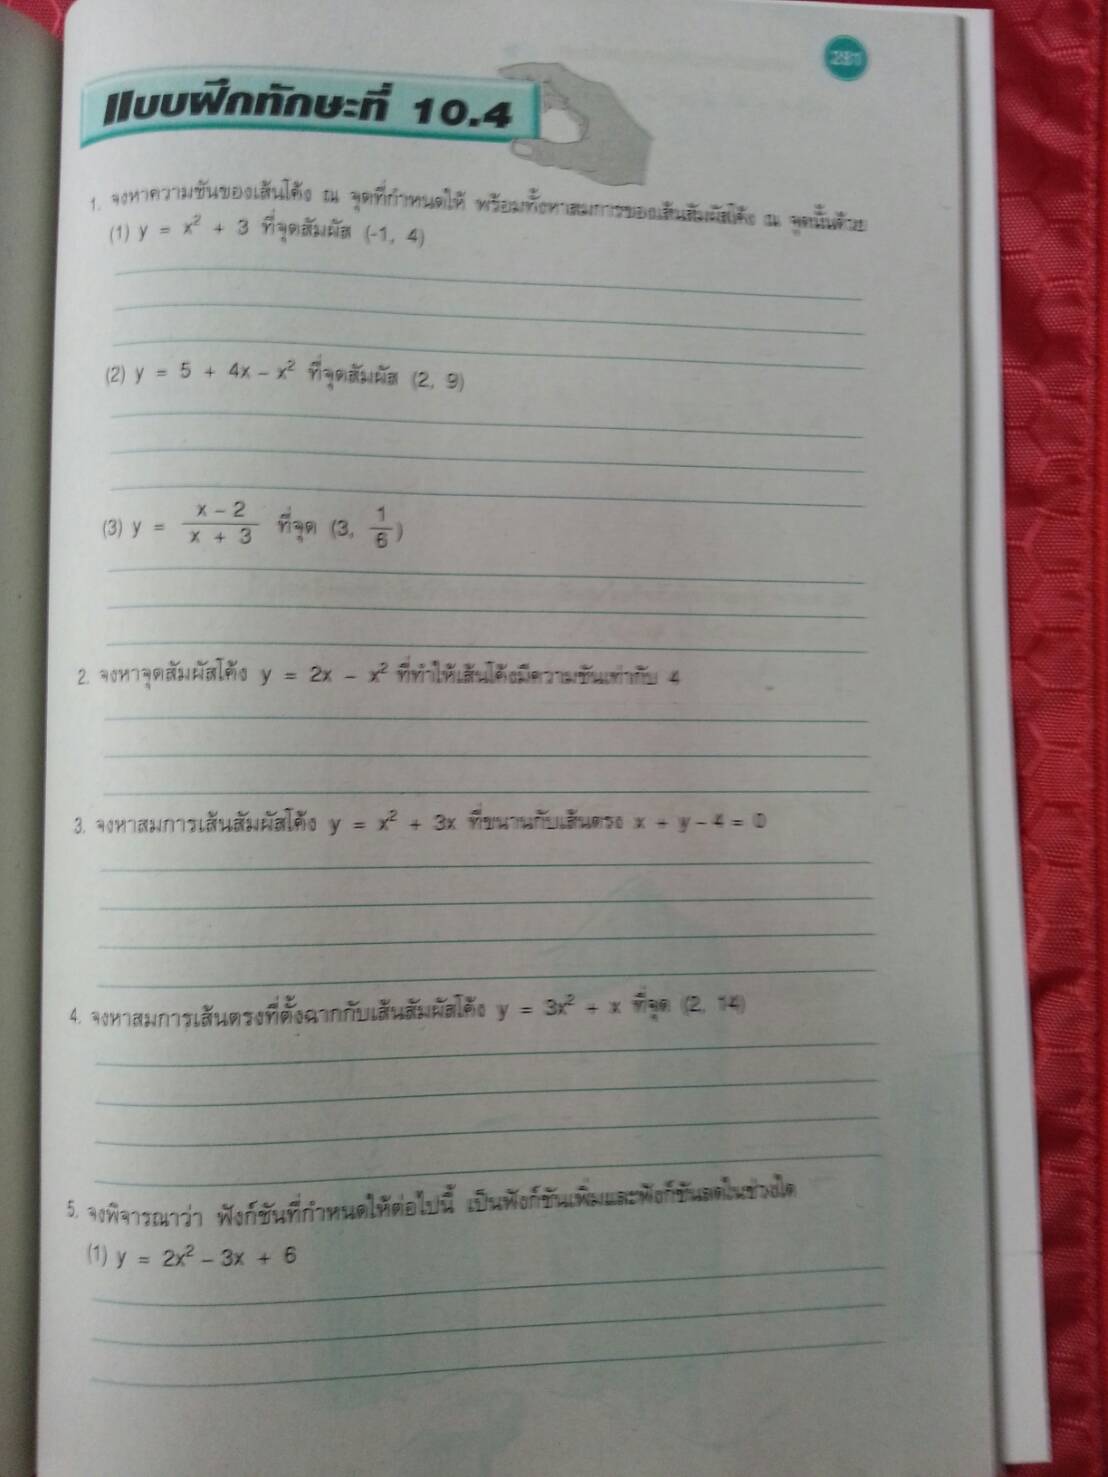 281
แบบฝึกทักษะที่ 10.4
1. จงหาความชันของเส้นโค้ง ณ จุดที่กำหนดให้ พร้อมทั้งหาสมการของเส้นสัมผัสโค้ง ณ จุดนั้นด้วย
(1) y = x² + 3 ที่จุดสัมผัส (-1, 4)
(2) y = 5 + 4x – x² ที่จุดสัมผัส (2, 9)
(3) y = (x – 2)/(x + 3) ที่จุด (3, 1/6)
2. จงหาจุดสัมผัสโค้ง y = 2x – x² ที่ทำให้เส้นโค้งมีความชันเท่ากับ 4
3. จงหาสมการเส้นสัมผัสโค้ง y = x² + 3x ที่ขนานกับเส้นตรง x + y – 4 = 0
4. จงหาสมการเส้นตรงที่ตั้งฉากกับเส้นสัมผัสโค้ง y = 3x² + x ที่จุด (2, 14)
5. จงพิจารณาว่า ฟังก์ชันที่กำหนดให้ต่อไปนี้ เป็นฟังก์ชันเพิ่มและฟังก์ชันลดในช่วงใด
(1) y = 2x² – 3x + 6